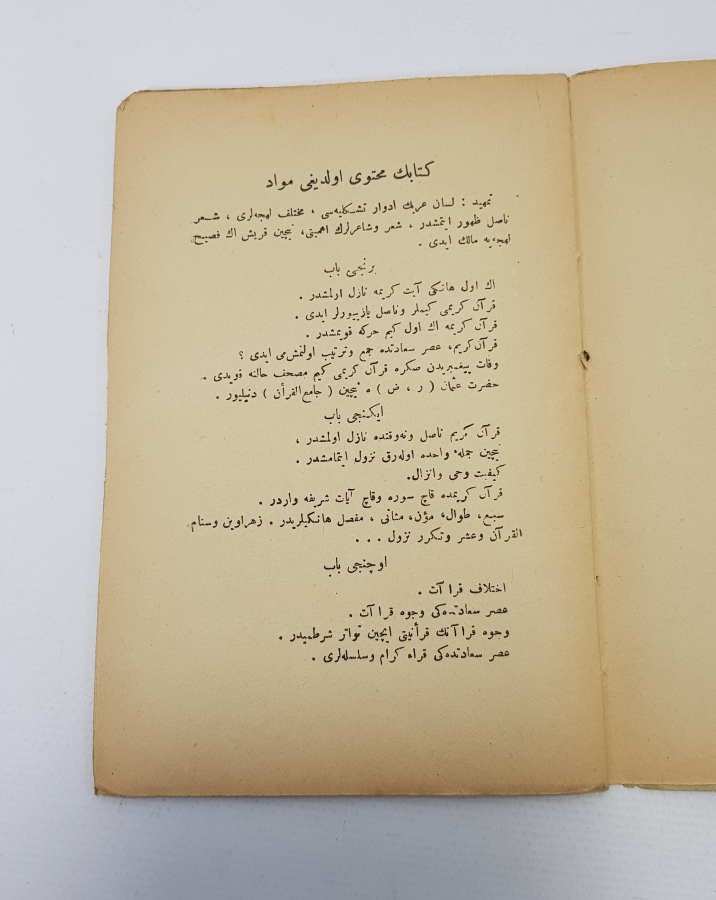 كتابك محتوى اولديغى مواد
تمهيد : لسان عربك ادوار تشكليه‌سى ، مختلف لهجه‌لرى ، شعر
ناصل ظهور ايتمشدر ، شعر وشاعرلرك اهميتى، نيچين قريش اك فصيح
لهجه‌يه مالك ايدى .
برنجى باب
اك اول هانكى آيت كريمه نازل اولمشدر .
قرآن كريمى كيملر وناصل يازييورلر ايدى .
قرآن كريمه اك اول كيم حركه قويمشدر .
قرآن كريم، عصر سعادتده جمع وترتيب اولنمش‌مى ايدى ؟
وفات پيغمبريدن صكره قرآن كريمى كيم مصحف حالنه قويدى .
حضرت عثمان ( ر ، ض ) ه نيچين ( جامع القرأن ) دنيليور .
ايكنجى باب
قرآن كريم ناصل ونه‌وقتده نازل اولمشدر ،
نيچين جملهٔ واحده اوله‌رق نزول ايتمامشدر .
كيفيت وحى وانزال.
قرآن كريمده قاچ سوره وقاچ آيات شريفه واردر .
سبع، طوال، مؤن، مثانى ، مفصل هانكيلريدر . زهراوين وسنام
القرآن وعشر وتكرر نزول . . .
اوچنجى باب
اختلاف قراآت .
عصر سعادتده‌كى وجوه قراآت .
وجوه قراآتك قرأنيتى ايچين تواتر شرطميدر .
عصر سعادتده‌كى قراء كرام وسلسله‌لرى .